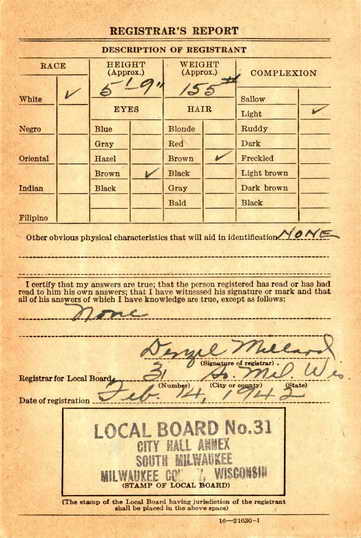 REGISTRAR'S REPORT
DESCRIPTION OF REGISTRANT
RACE
HEIGHT (Approx.)
WEIGHT (Approx.)
COMPLEXION
5' 9"
155#
White ✓
EYES
HAIR
Sallow
Light ✓
Negro
Blue
Blonde
Ruddy
Gray
Red
Dark
Oriental
Hazel
Brown ✓
Freckled
Brown ✓
Black
Light brown
Indian
Black
Gray
Dark brown
Bald
Black
Filipino
Other obvious physical characteristics that will aid in identification NONE
I certify that my answers are true; that the person registered has read or has had
read to him his own answers; that I have witnessed his signature or mark and that
all of his answers of which I have knowledge are true, except as follows:
None
Denzil Millard
(Signature of registrar)
Registrar for Local Board 31 So. Mil. Wis.
(Number) (City or county) (State)
Date of registration Feb. 14, 1942
LOCAL BOARD No. 31
CITY HALL ANNEX
SOUTH MILWAUKEE
MILWAUKEE CO , WISCONSIN
(STAMP OF LOCAL BOARD)
(The stamp of the Local Board having jurisdiction of the registrant
shall be placed in the above space)
16—21630-1